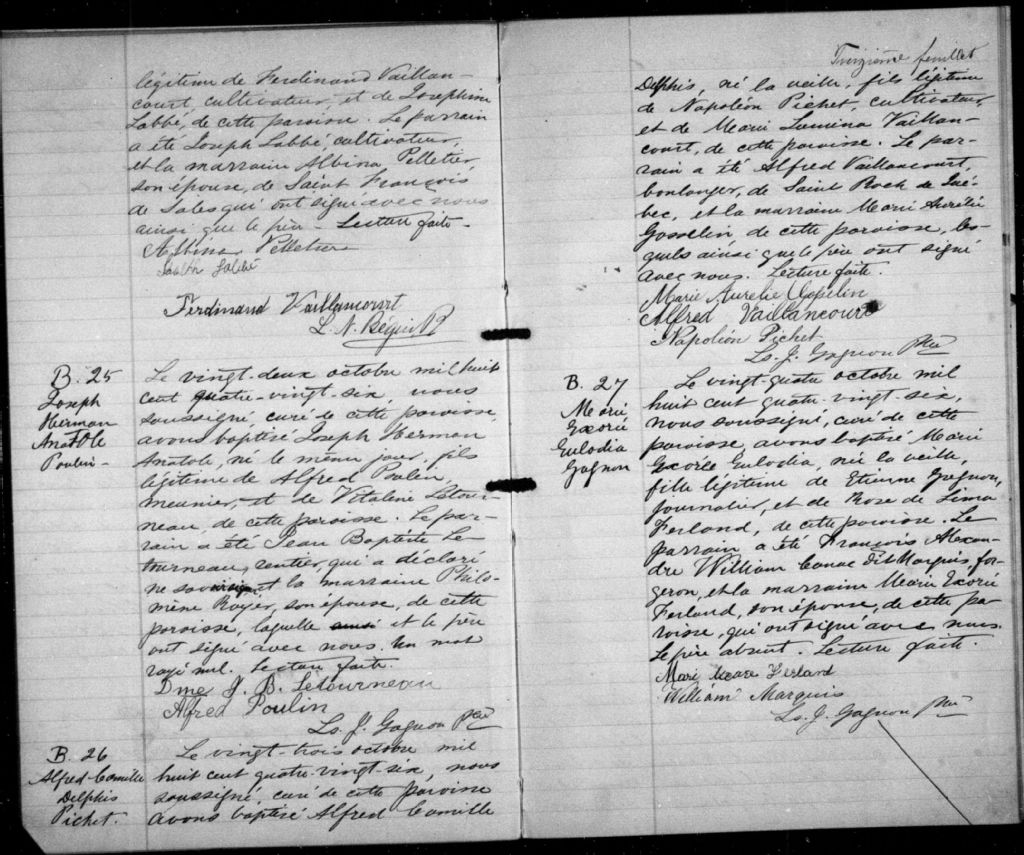 légitime de Ferdinand Vaillan-
court, cultivateur, et de Josephine
Labbé, de cette paroisse. Le parrain
a été Joseph Labbé, cultivateur,
et la marraine Albina Pelletier,
son épouse, de Saint François
de Sales qui ont signé avec nous
ainsi que le père - Lecture faite -
Albina Pelletier
Joseph Labbé
Ferdinand Vaillancourt
L. N. Bégin
B. 25
Joseph
Herman
Anatole
Poulin -
Le vingt-deux octobre mil huit
cent quatre-vingt-six, nous
soussigné, curé de cette paroisse,
avons baptisé Joseph Herman
Anatole, né le même jour, fils
légitime de Alfred Poulin,
meunier, et de Vitaline Létour-
neau, de cette paroisse. Le par-
rain a été Jean Baptiste Le
tourneau, rentier, qui a déclaré
ne savoir signer et la marraine Philo-
mène Royer, son épouse, de cette
paroisse, laquelle ainsi et le père
ont signé avec nous. Un mot
rayé nul. Lecture faite.
Dme J. B. Létourneau
Alfred Poulin
Ls. J. Gagnon Ptre
B. 26
Alfred Camille
Delphis
Pichet.
Le vingt-trois octobre mil
huit cent quatre-vingt-six, nous
soussigné, curé de cette paroisse
avons baptisé Alfred Camille
Treizième feuillet
Delphis, né la veille, fils légitime
de Napoléon Pichet, cultivateur,
et de Marie Lumina Vaillan-
court, de cette paroisse. Le par-
rain a été Alfred Vaillancourt,
boulanger, de Saint Roch de Qué-
bec, et la marraine Marie Aurélie
Gosselin de cette paroisse, les-
quels ainsi que le père ont signé
avec nous. Lecture faite.
Marie Aurelie Gosselin
Alfred Vaillancourt
Napoléon Pichet
Ls. J. Gagnon Ptre
B. 27
Marie
Exorée
Eulodia
Gagnon
Le vingt-quatre octobre mil
huit cent quatre-vingt-six,
nous soussigné, curé de cette
paroisse, avons baptisé Marie
Exorée Eulodia, née la veille,
fille légitime de Etienne Gagnon,
journalier, et de Rose de Lima
Ferland, de cette paroisse. Le
parrain a été François Alexan-
dre William Canac dit Marquis for-
geron, et la marraine Marie Exorée
Ferland, son épouse, de cette pa-
roisse, qui ont signé avec nous.
Le père absent. Lecture faite.
Marie Ferland
William Marquis
Ls. J. Gagnon Ptre